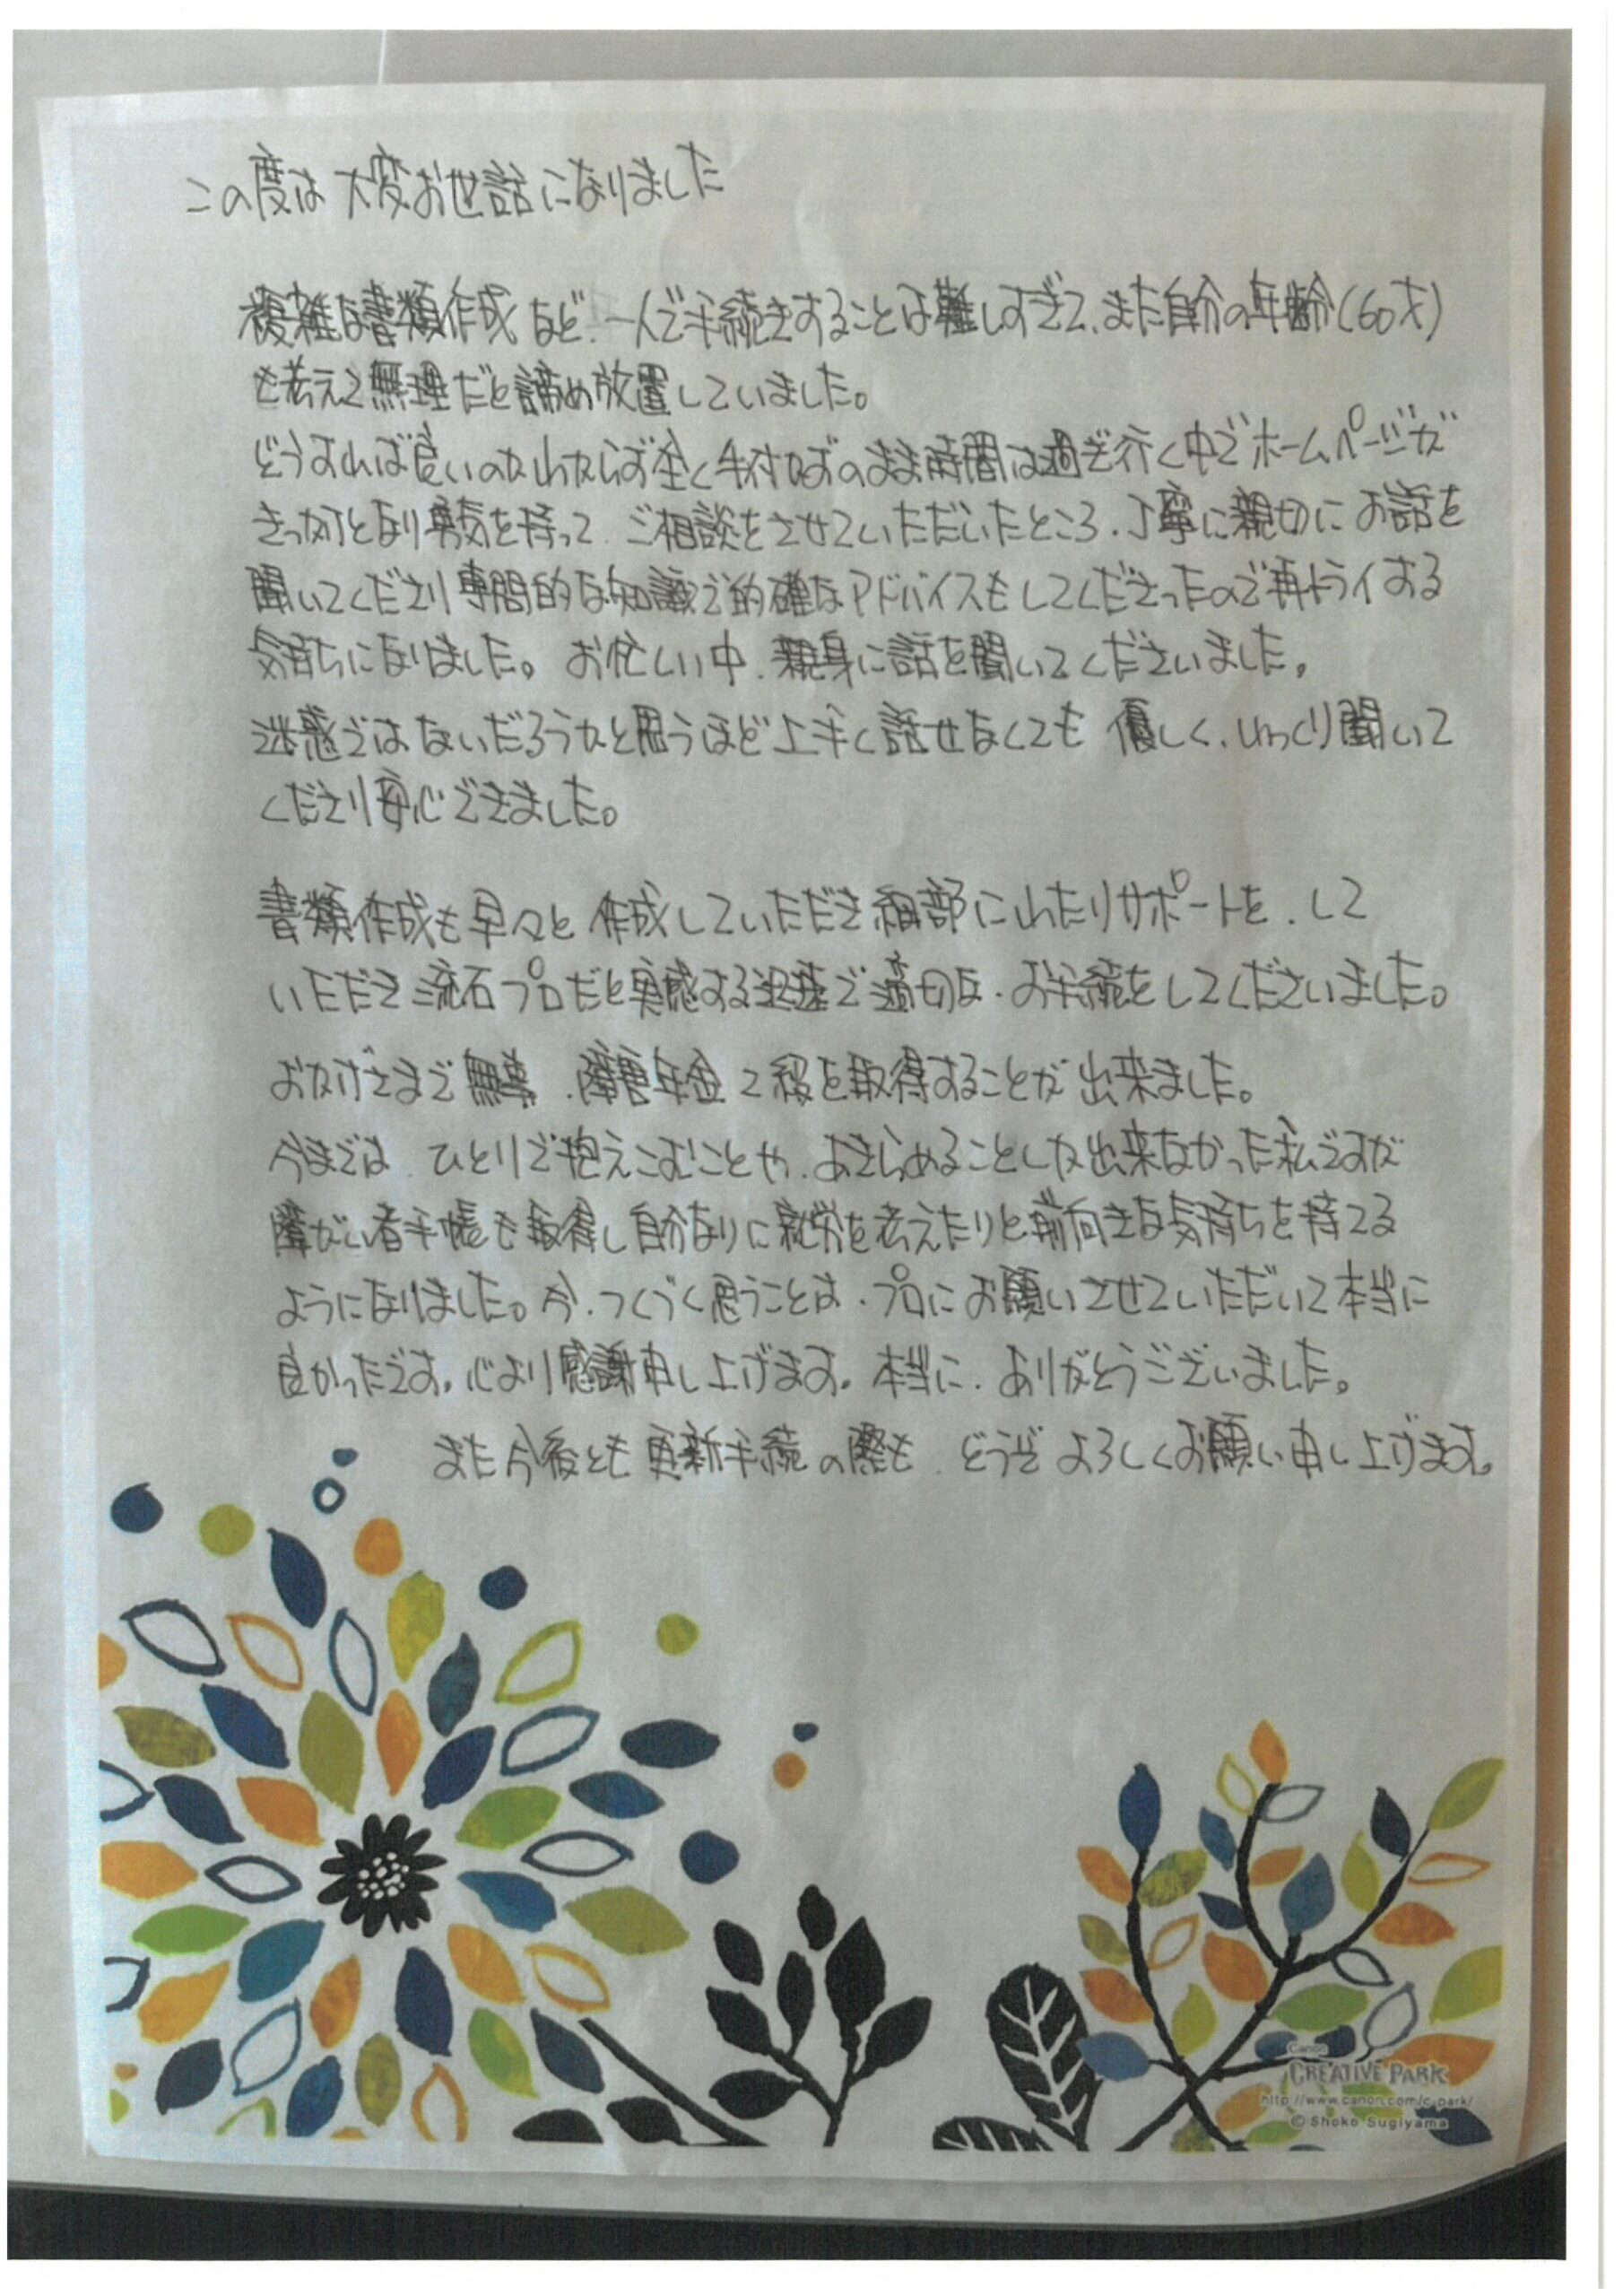 この度は大変お世話になりました
複雑な書類作成など、一人で手続きすることは難しすぎて、また自分の年齢(60才)
を考えて無理だと諦め放置していました。
どうすれば良いのかわからず全く手付かずのまま時間は過ぎ行く中でホームページが
きっかけとなり勇気を持って、ご相談をさせていただいたところ、丁寧に親切にお話を
聞いてくださり専門的な知識で的確なアドバイスもしてくださったので再トライする
気持ちになりました。お忙しい中、親身に話を聞いてくださいました。
迷惑ではないだろうかと思うほど上手く話せなくても優しく、ゆっくり聞いて
くださり安心できました。
書類作成も早々と作成していただき細部にわたりサポートを、して
いただき流石プロだと実感する迅速で適切な、お手続をしてくださいました。
おかげさまで無事、障害年金2級を取得することが出来ました。
今までは、ひとりで抱えこむことや、あきらめることしか出来なかった私ですが
障がい者手帳も取得し自分なりに就労を考えたりと前向きな気持ちを持てる
ようになりました。今、つくづく思うことは、プロにお願いさせていただいて本当に
良かったです。心より感謝申し上げます。本当に、ありがとうございました。
また今後とも更新手続の際も、どうぞよろしくお願い申し上げます。
Canon
CREATIVE PARK
http://www.canon.com/c-park/
© Shoko Sugiyama